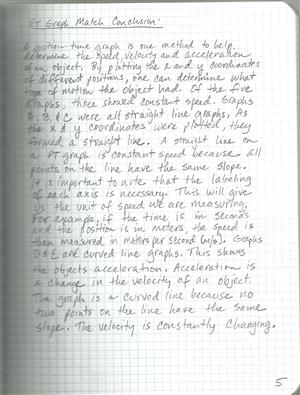 PT Graph Match Conclusion:
A position time graph is one method to help
determine the speed, velocity and acceleration
of an object. By plotting the x and y coordinates
of different positions, one can determine what
type of motion the object had. Of the five
graphs, three showed constant speed. Graphs
A, B, & C were all straight line graphs. As
the x & y coordinates were plotted, they
formed a straight line. A straight line on
a PT graph is constant speed because all
points on the line have the same slope.
It is important to note that the labeling
of each axis is necessary. This will give
us the unit of speed we are measuring.
For example, if the time is in seconds
and the position is in meters, the speed is
then measured in meters per second (m/s). Graphs
D & E are curved line graphs. This shows
the objects acceleration. Acceleration is
a change in the velocity of an object.
The graph is a curved line because no
two points on the line have the same
slope. The velocity is constantly changing.
5